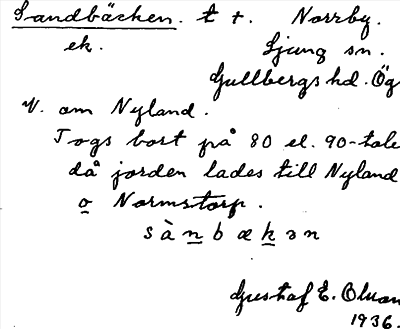 Sandbäcken. t t. Norrby.
ek. Ljung sn.
Gullbergs hd. Ög
V. om Nyland.
Togs bort på 80 el. 90-tale
då jorden lades till Nyland
o Normstorp.
sànbækən
Gustaf E. Olson
1936.